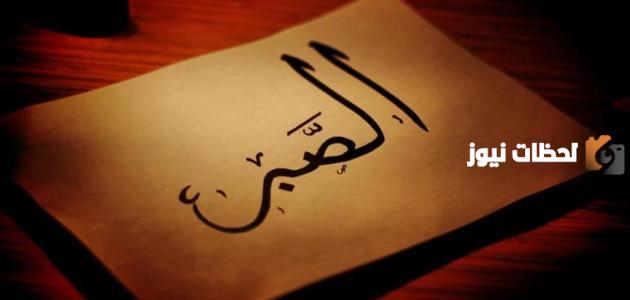 الصَّبر
لحظات نيوز